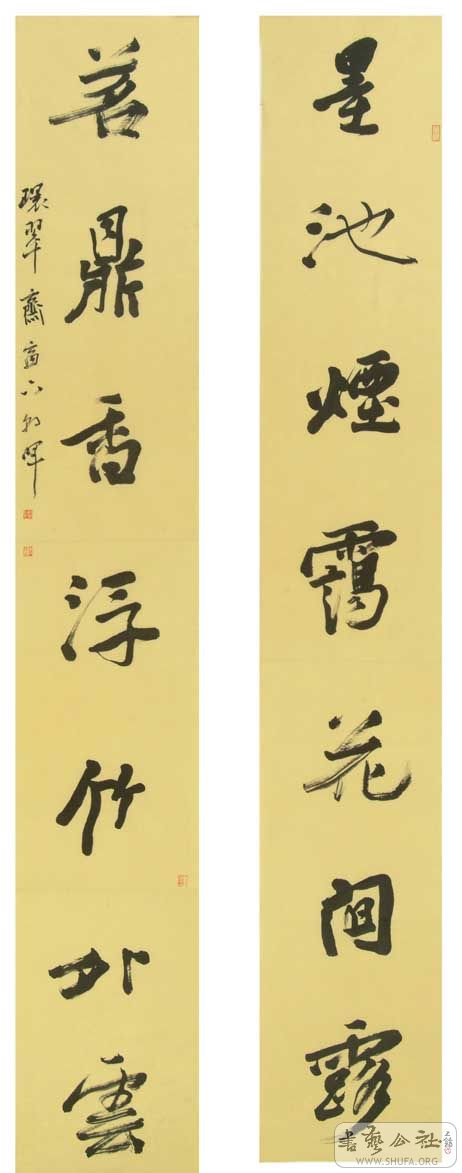 墨池煙靄花間露
茗鼎香浮竹外雲
環翠齋
書藝公社
WWW.SHUFA.ORG